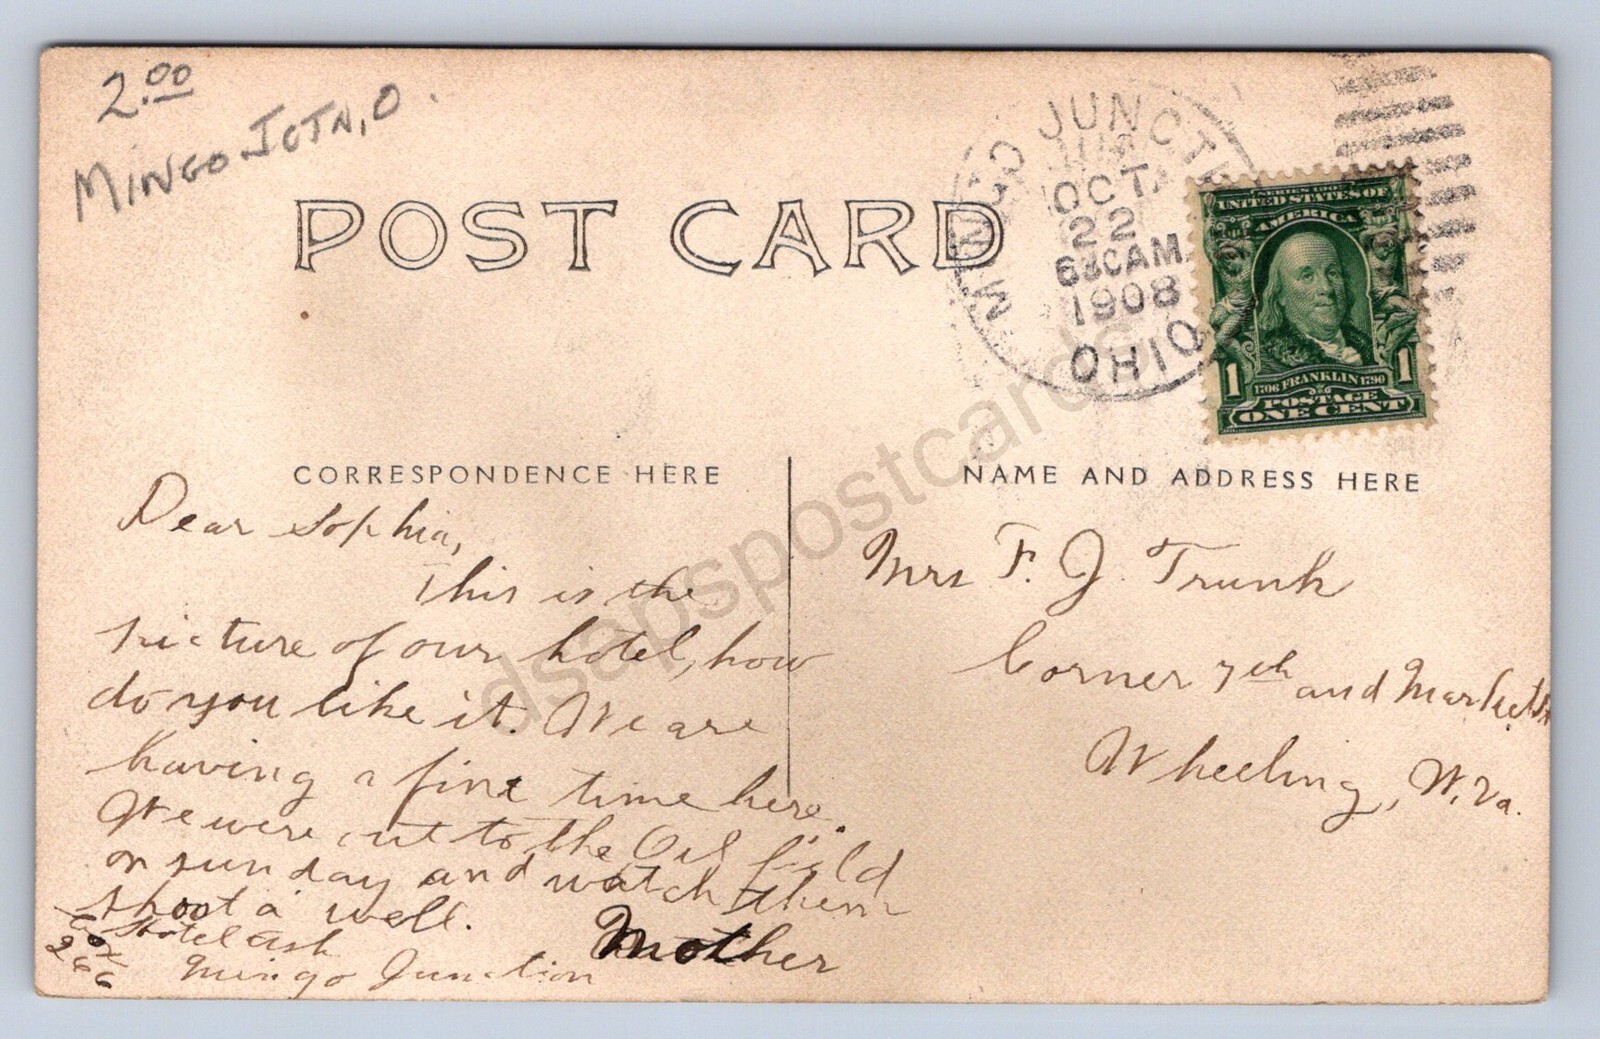 2.00
MINGO JCTN, O.
POST CARD
MINGO JUNCT
OCT
22
630AM
1908
OHIO
SERIES 1902
UNITED STATES OF
AMERICA
1 1706 FRANKLIN 1790 1
POSTAGE
ONE CENT
CORRESPONDENCE HERE
NAME AND ADDRESS HERE
Dear Sophia,
This is the
picture of our hotel, how
do you like it. We are
having a fine time here.
We were out to the Oil field
on sunday and watch them
shoot a well.
Mother
Hotel Ash
Box
266
Mingo Junction
Mrs F. J. Trunk
Corner 7th and Market St
Wheeling, W. Va.
dsapspostcards